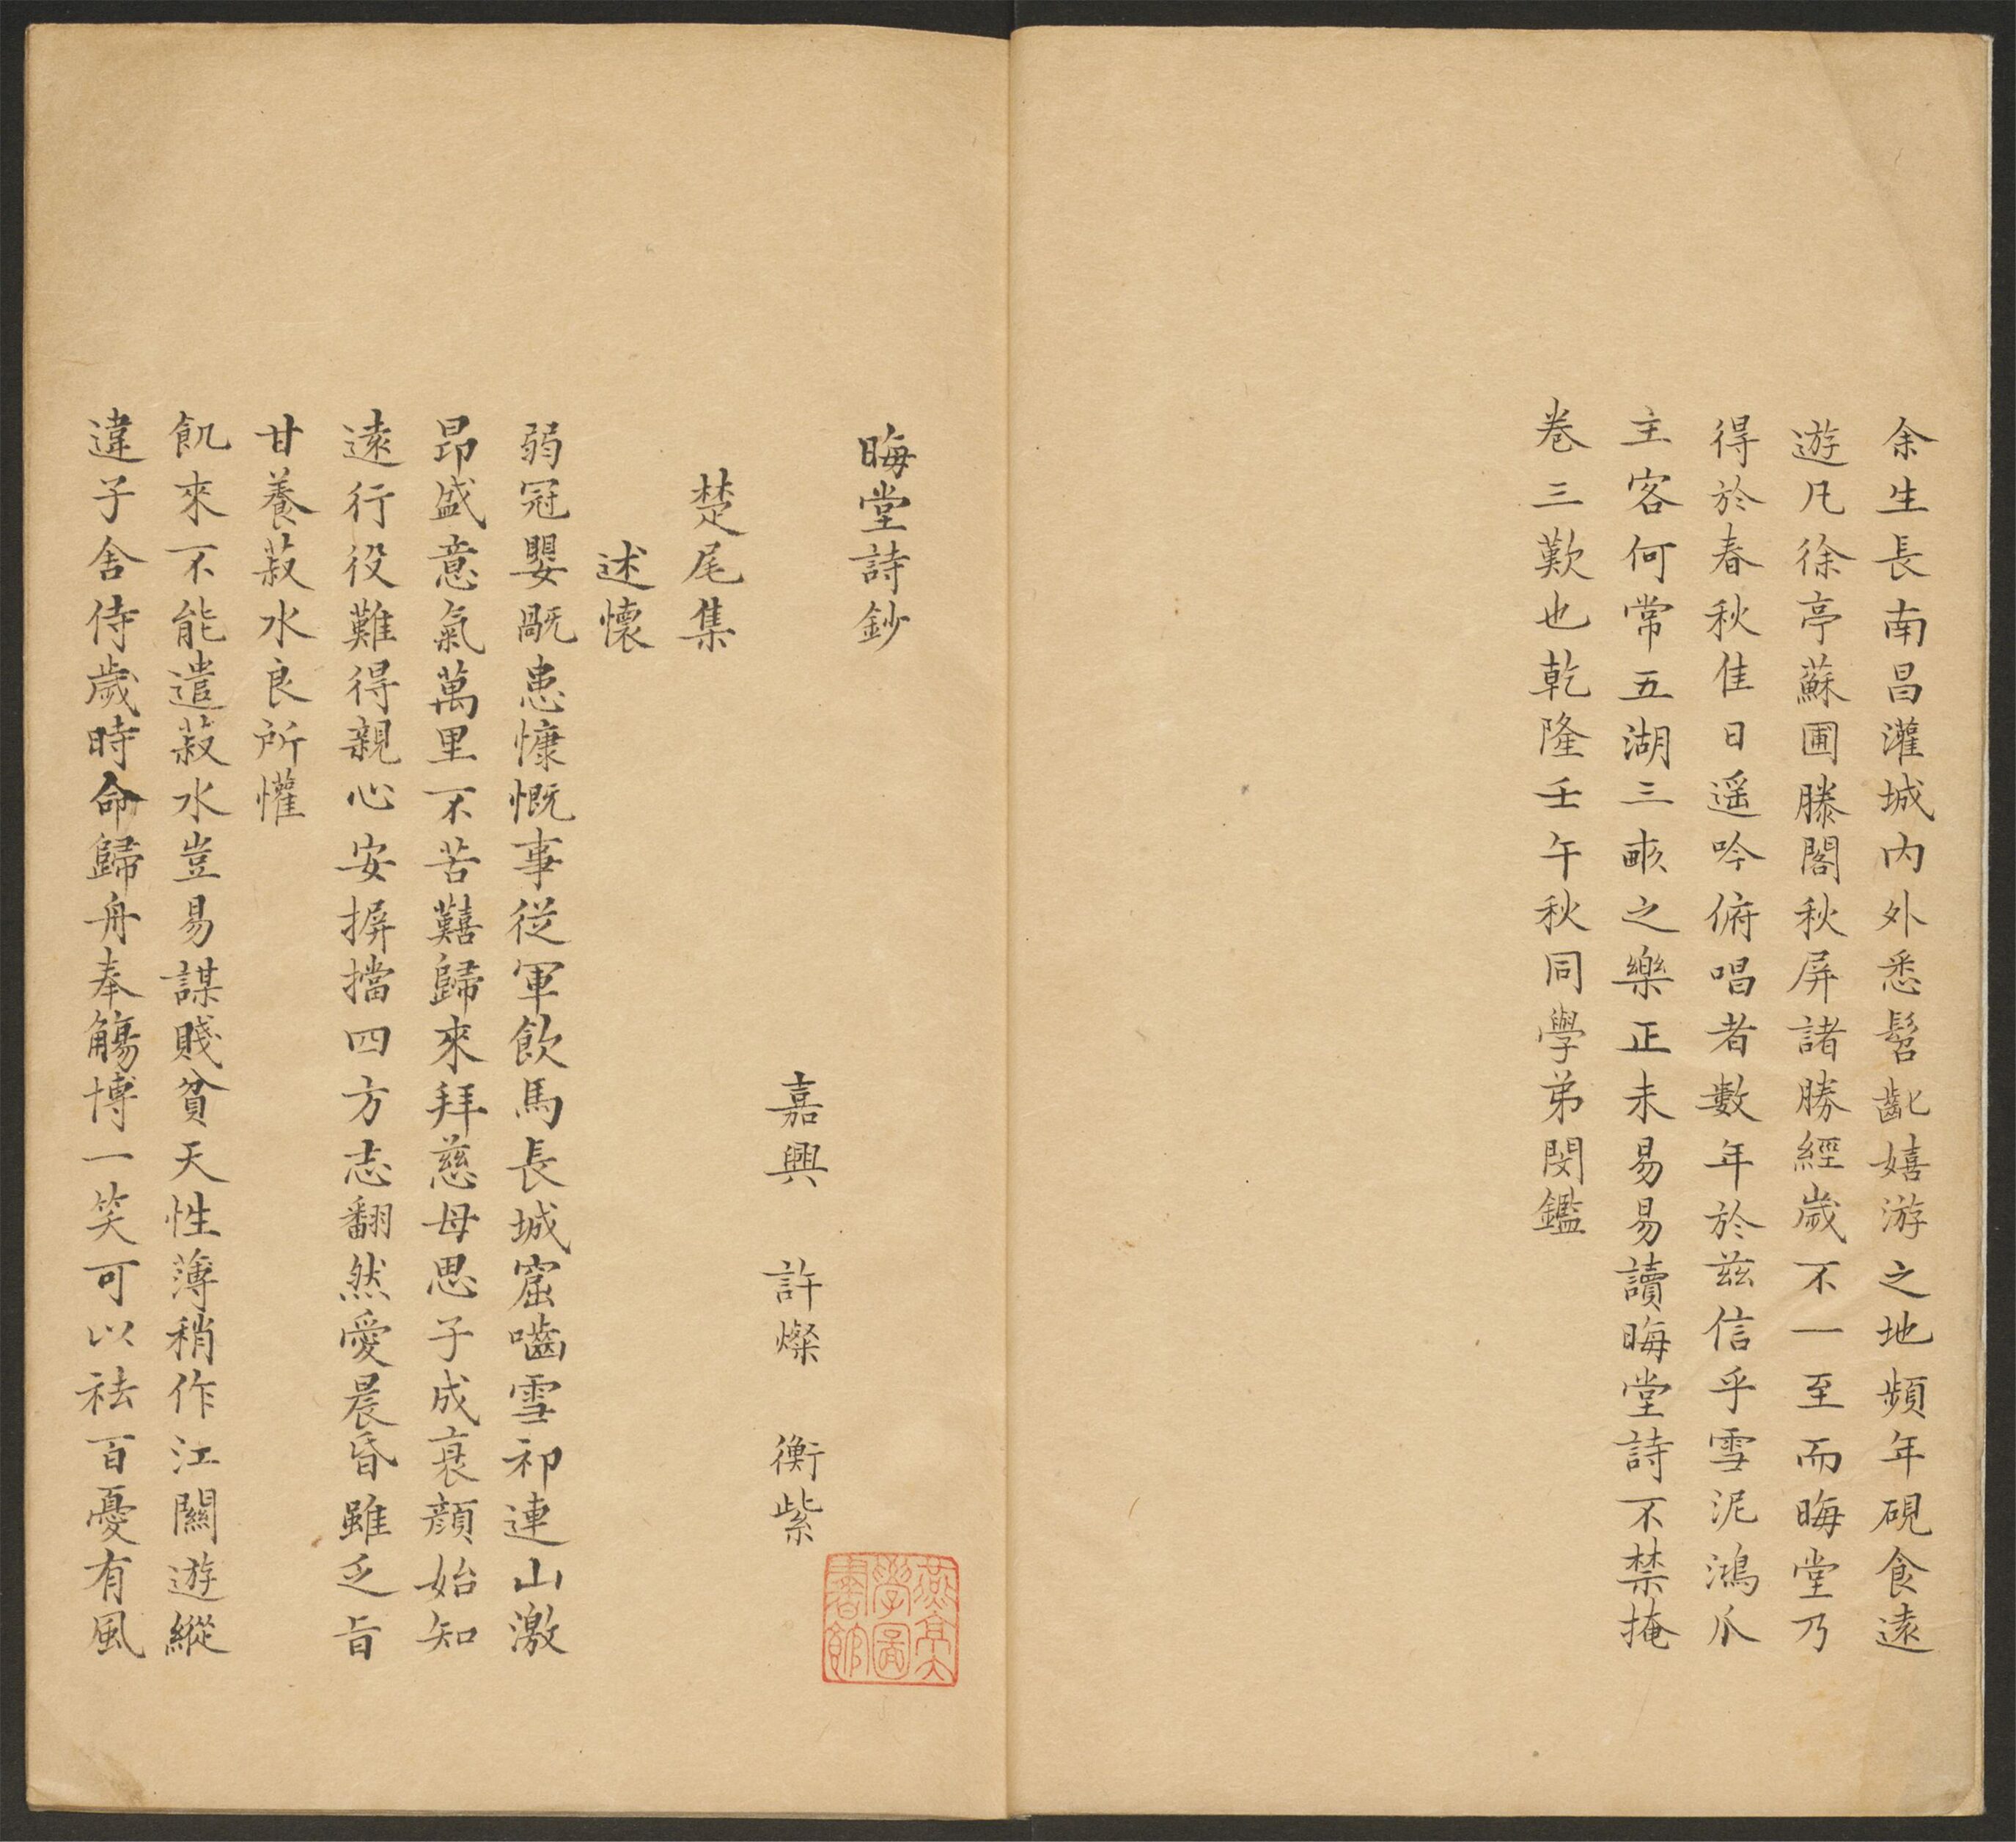 余生長南昌灌城內外悉髫齔嬉游之地頻年硯食遠
遊凡徐亭蘇圃滕閣秋屏諸勝經歲不一至而晦堂乃
得於春秋佳日遥吟俯唱者數年於茲信乎雪泥鴻爪
主客何常五湖三畝之樂正未易易讀晦堂詩不禁掩
卷三歎也乾隆壬午秋同學弟閔鑑
晦堂詩鈔
嘉興 許燦 衡紫
楚尾集
述懷
弱冠嬰羸患慷慨事從軍飲馬長城窟嚙雪祁連山激
昂盛意氣萬里不苦囏歸來拜慈母思子成衰顏始知
遠行役難得親心安摒擋四方志翻然愛晨昏雖乏旨
甘養菽水良所懽
飢來不能遣菽水豈易謀賤貧天性薄稍作江關遊縱
違子舍侍歲時命歸舟奉觴博一笑可以祛百憂有風
燕京大
學圖
書館